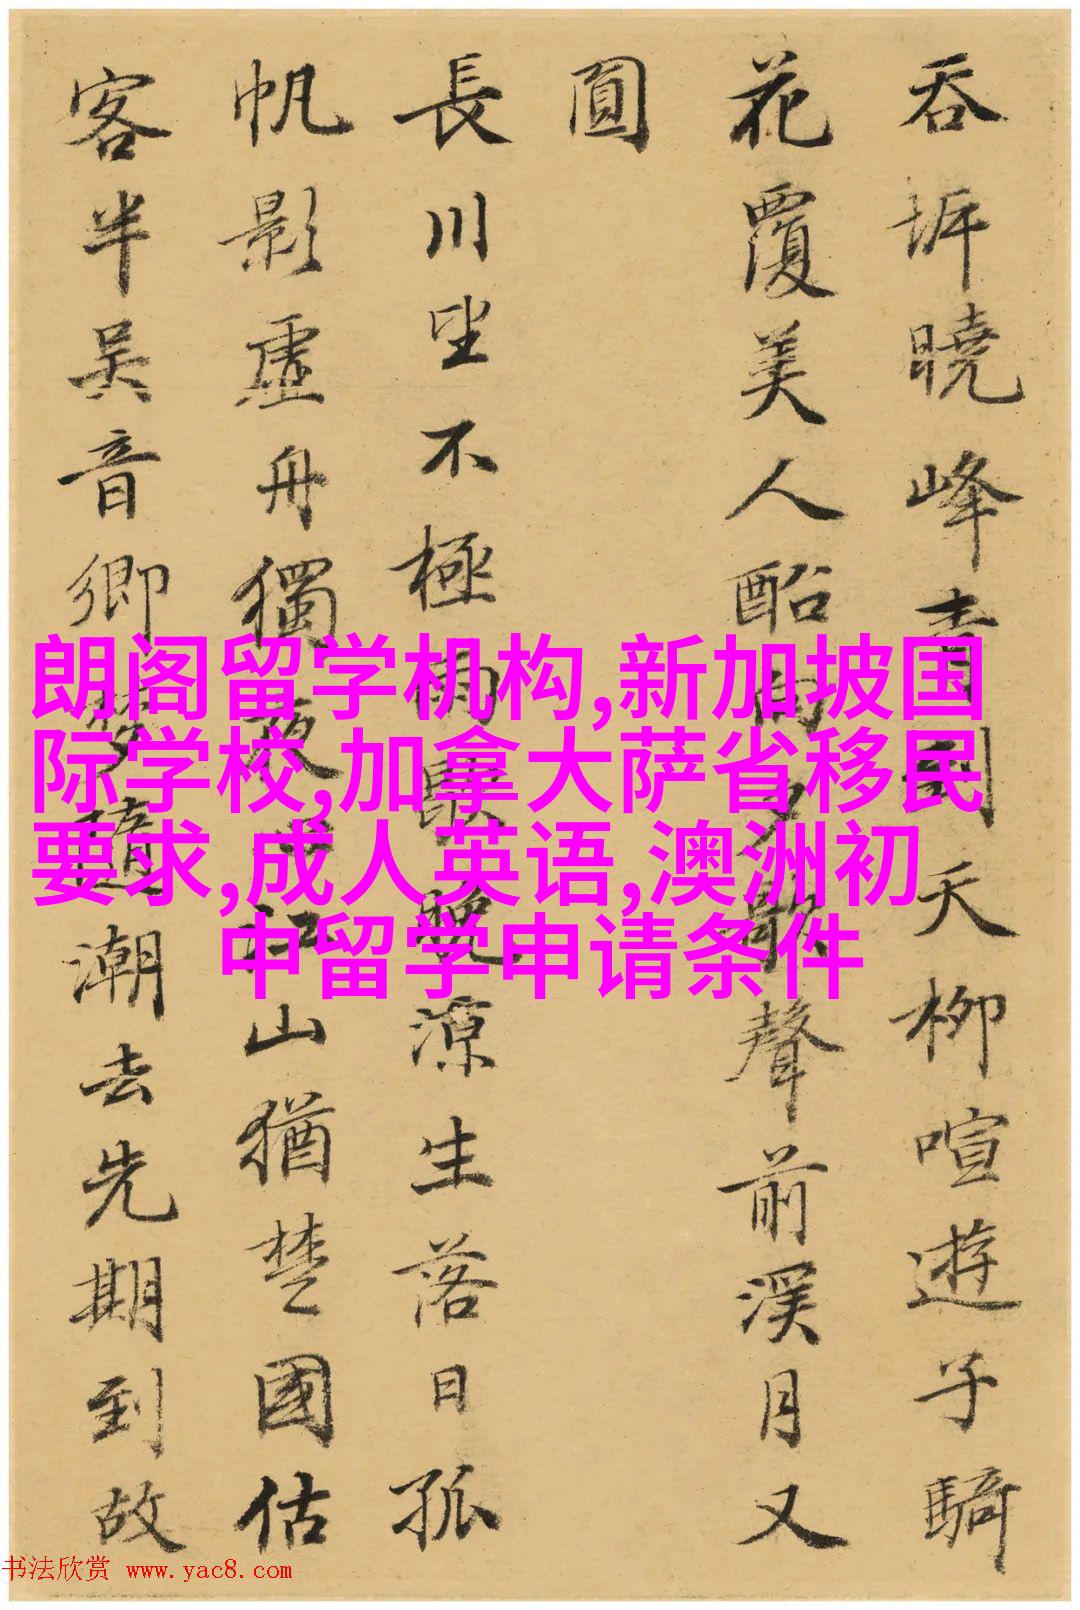 吞圻曉峰青到天柳喧遊子騎
花覆美人酩月夕歌聲前溪月又
圓
長川坐不極雨歇晚涼生落日孤
帆影虛舟獨夜江山猶楚國估
客半吳音鄉隨潮去先期到故
朗阁留学机构,新加坡国
际学校,加拿大萨省移民
要求,成人英语,澳洲初
中留学申请条件
书法欣赏 www.yac8.com